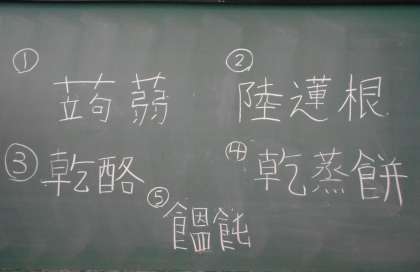 ① 蒟蒻
② 陸蓮根
③ 乾酪
④ 乾蒸餅
⑤ 饂飩